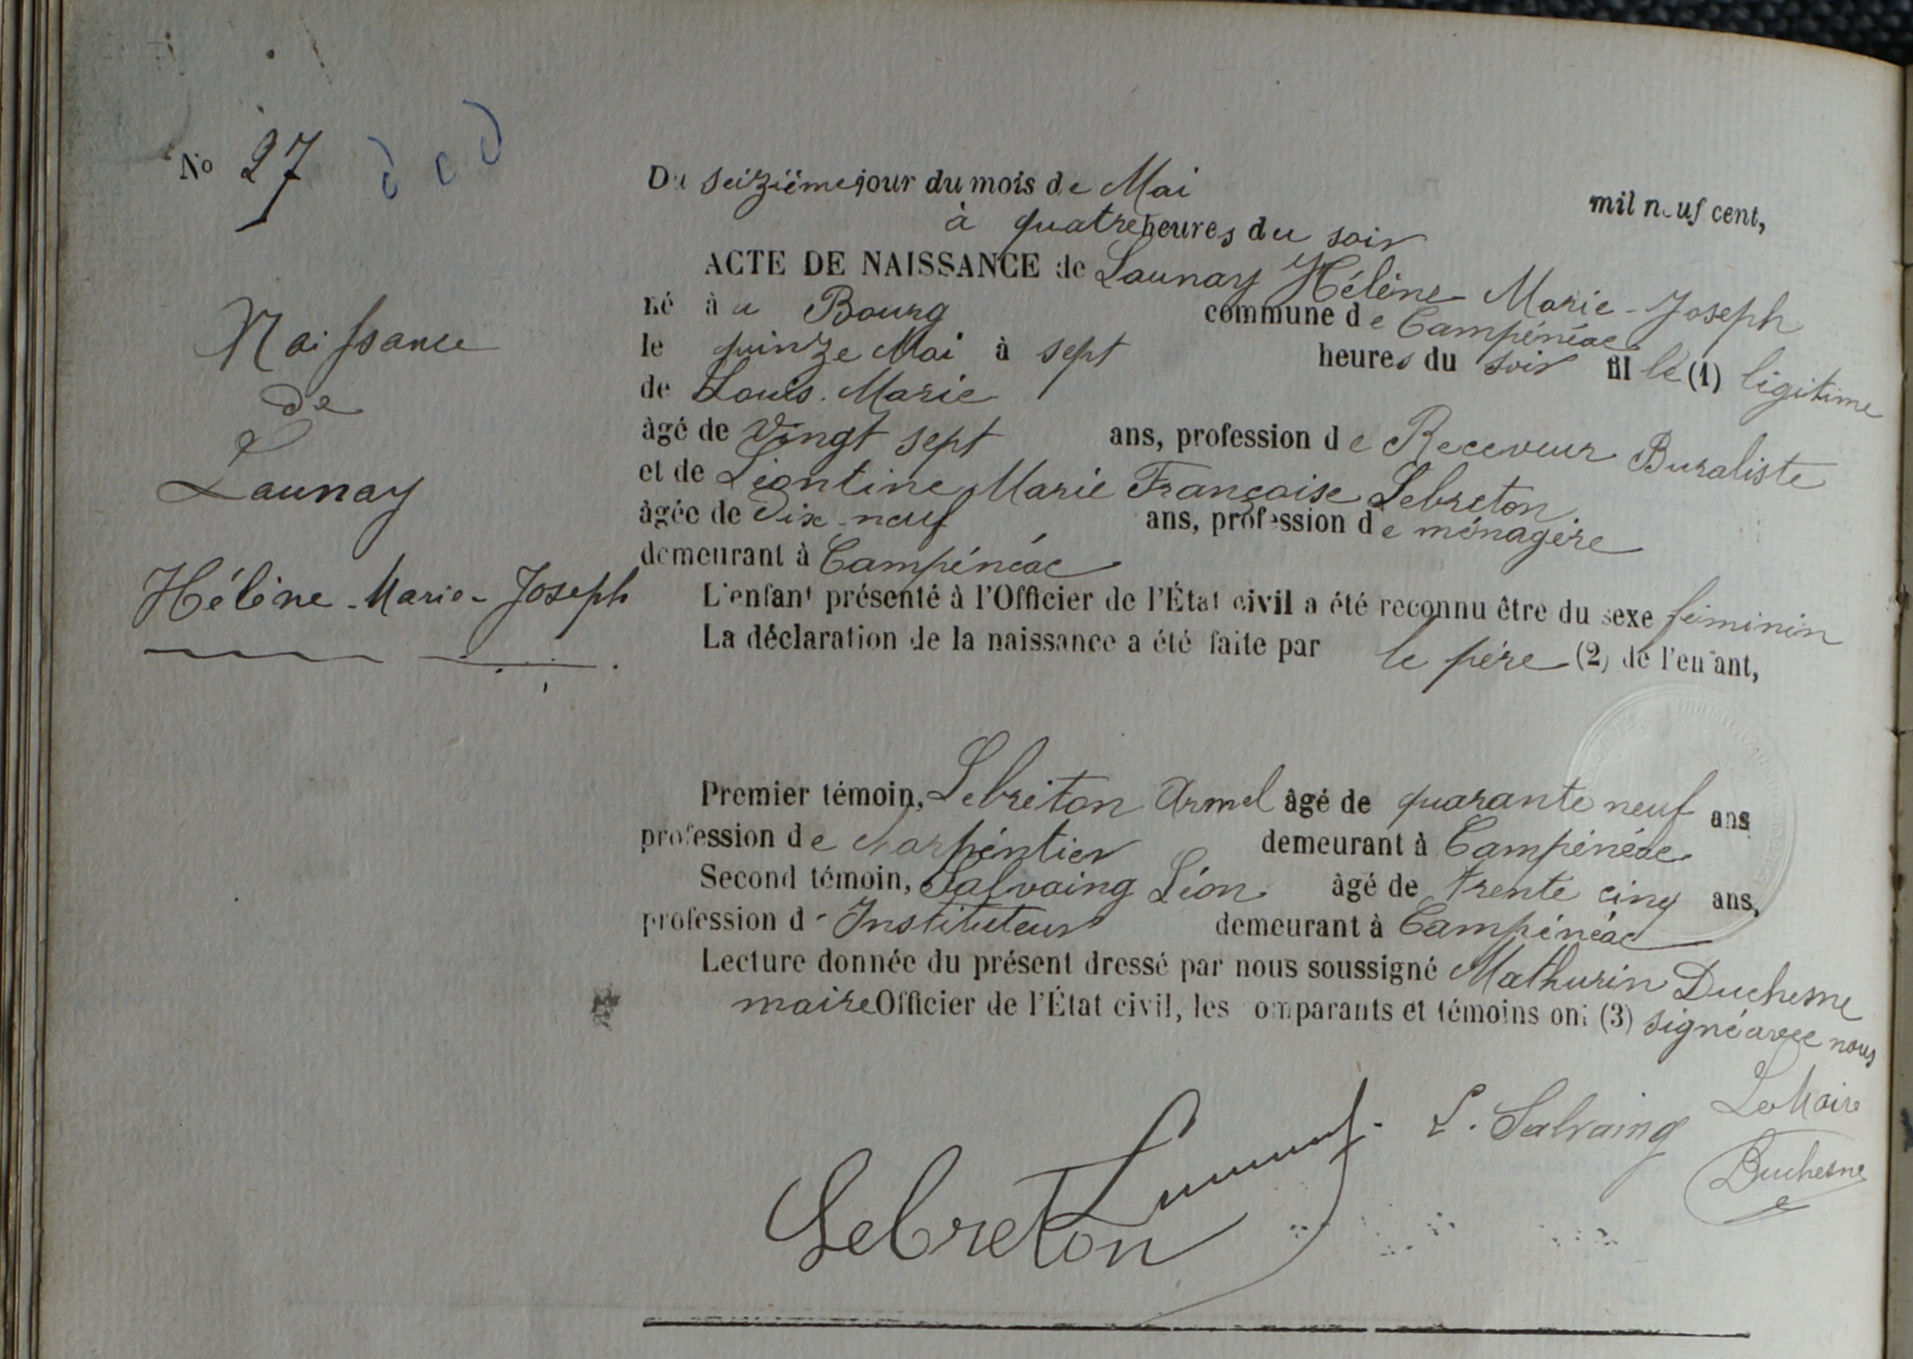 No 27
Du seizième jour du mois de Mai mil neuf cent,
à quatre heures du soir
ACTE DE NAISSANCE de Launay Hélène Marie-Joseph
né à u Bourg commune de Campénéac
le quinze Mai à sept heures du soir fille (1) légitime
de Louis. Marie
âgé de Vingt sept ans, profession de Receveur Buraliste
et de Léontine Marie Françoise Lebreton
âgée de Dix-neuf ans, profession de ménagère
demeurant à Campénéac
L'enfant présenté à l'Officier de l'État civil a été reconnu être du sexe féminin
La déclaration de la naissance a été faite par le père (2) de l'enfant,
Naissance
de
Launay
Hélène-Marie-Joseph
Premier témoin, Lebreton Armel âgé de quarante neuf ans
profession de charpentier demeurant à Campénéac
Second témoin, Salvaing Léon âgé de trente cinq ans,
profession d' Instituteur demeurant à Campénéac
Lecture donnée du présent dressé par nous soussigné Mathurin Duchesne
maire Officier de l'État civil, les comparants et témoins ont (3) signé avec nous
L. Salvaing Le Maire
Duchesne
Lebreton